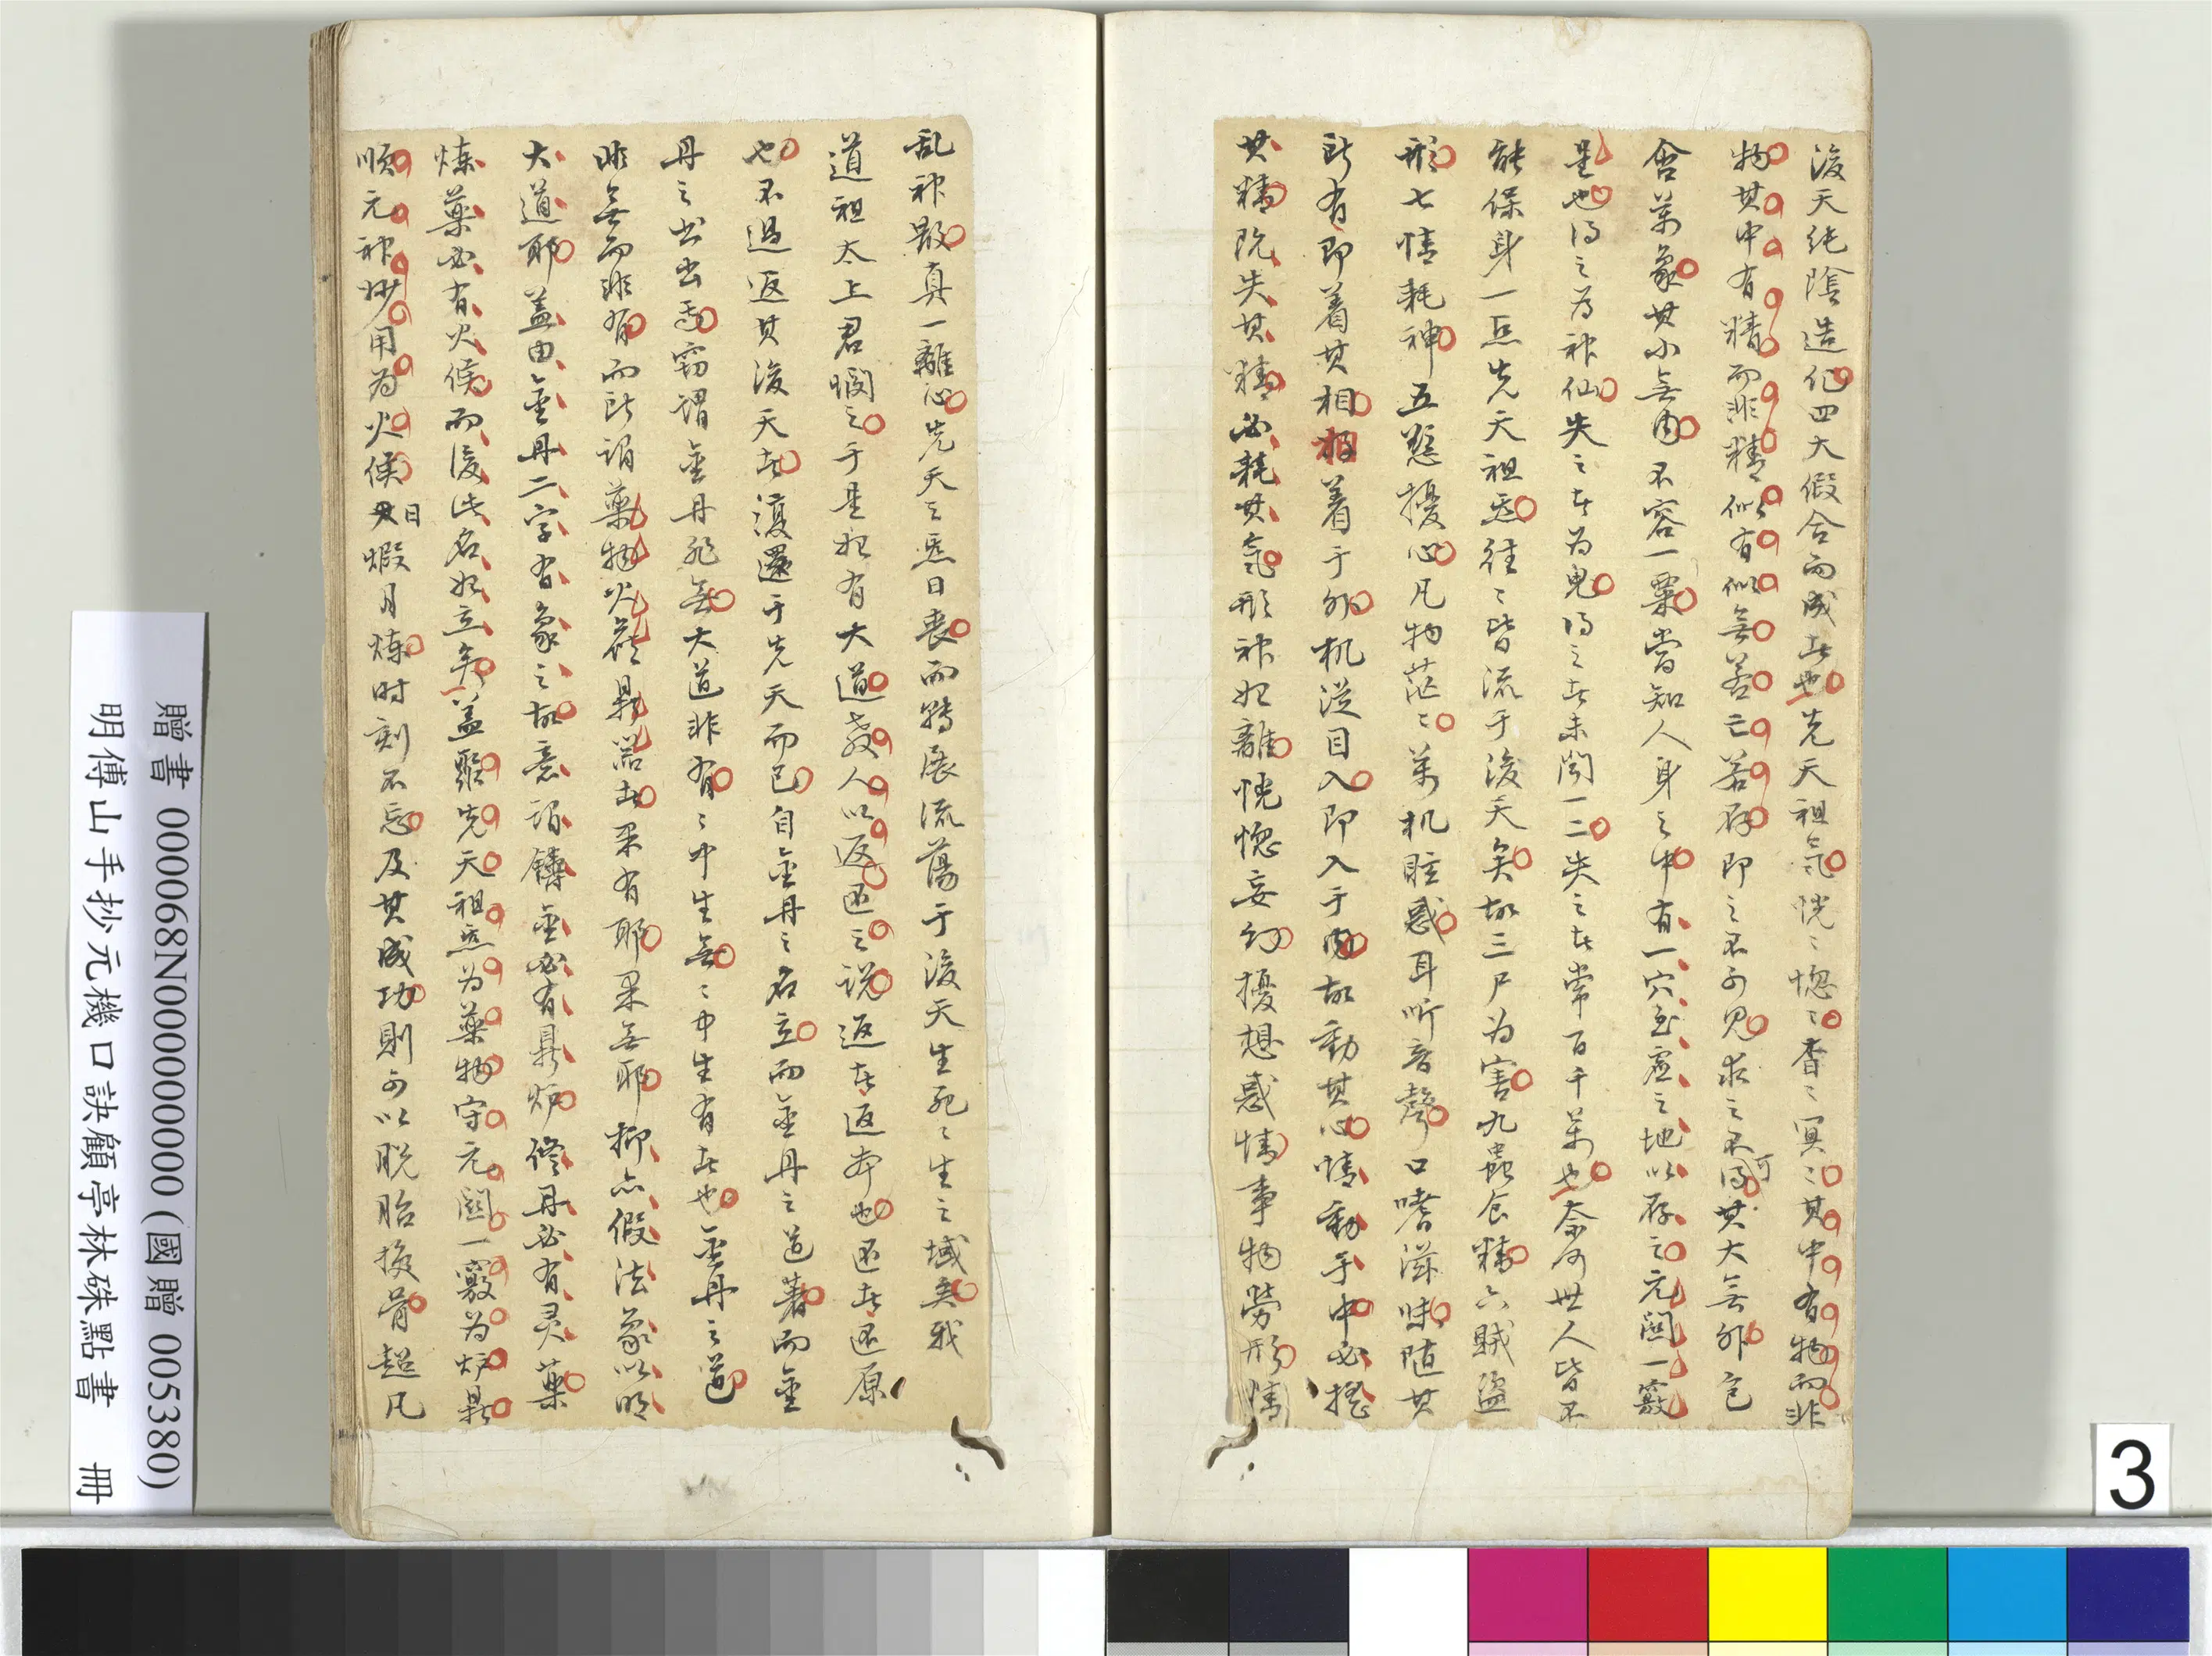 後天純陰造化四大假合而成者也先天祖氣恍〻惚〻杳〻冥〻其中有物而非
物其中有精而非精似有似無若亡若存即之不可見求之不可得其大無外包
含萬象其小無內不容一粟當知人身之中有一穴至虛之地以存之元關一竅
是也得之為神仙失之者為鬼得之者未聞一二失之者常百千萬也奈何世人皆不
能保身一点先天祖炁往〻皆流于後天矣故三尸为害九蟲食精六賊盜
形七情耗神五慾擾心凡物茫〻萬机眩惑耳听音聲口嗜滋味随其
所有即着其相相着于外机從目入即入于內故動其心情動乎中必搖
其精既失其精必耗其氣形神始離恍惚妄幻擾想惑情事物勞形情
乱神散真一離心先天之炁日喪而轉展流蕩于後天生死〻生之域矣我
道祖太上君憫之于是始有大道教人以返还之説返者返本也还者还原
也不過返其後天者復還于先天而已自金丹之名立而金丹之道著而金
丹之書出焉竊謂金丹非無大道非有〻中生無〻中生有者也金丹之道
非無而非有而所謂藥物火候鼎器者果有耶果無耶抑亦假法象以明
大道耶盖由金丹二字有象之故意謂鑄金必有鼎炉修丹必有灵藥
煉藥必有火候而後此名始立矣盖聚先天祖炁为藥物守元關一竅为炉鼎
順元神妙用为火候日煅月煉时刻不忘及其成功則可以脱胎換骨超凡
贈書 000068N000000000 (國贈 005380)
明傅山手抄元機口訣顧亭林硃點書 冊
3